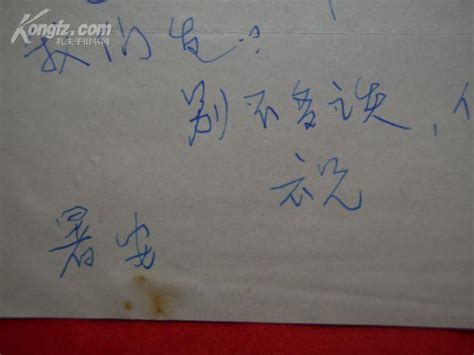 Kongfz.com
孔夫子旧书网
我们生？
别不多谈，
云说
暑安